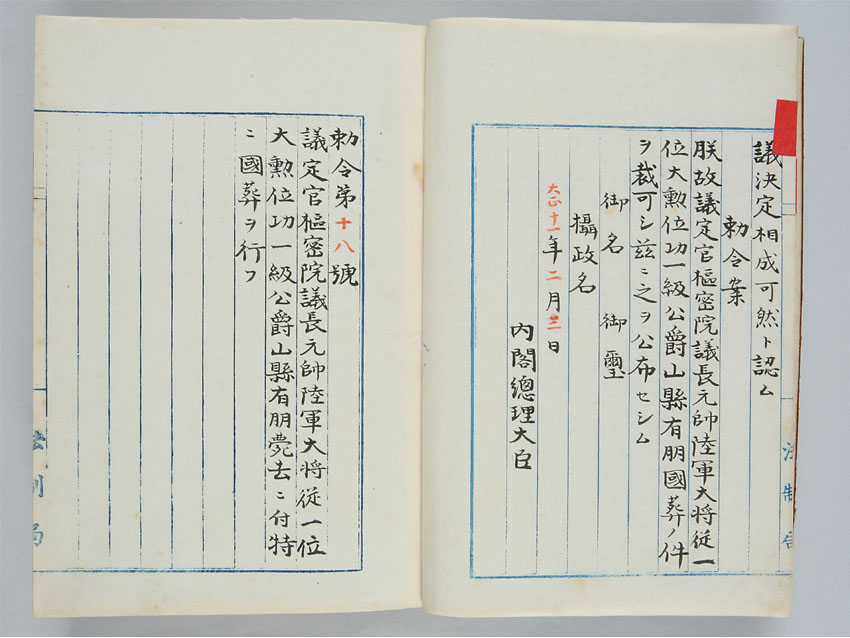 議決定相成可然ト認ム
勅令案
朕故議定官樞密院議長元帥陸軍大将従一
位大勲位功一級公爵山縣有朋國葬ノ件
ヲ裁可シ茲ニ之ヲ公布セシム
御名御璽
攝政名
大正十一年二月三日
内閣總理大臣
法制局
勅令第十八號
議定官樞密院議長元帥陸軍大将従一位
大勲位功一級公爵山縣有朋薨去ニ付特
ニ國葬ヲ行フ
法制局